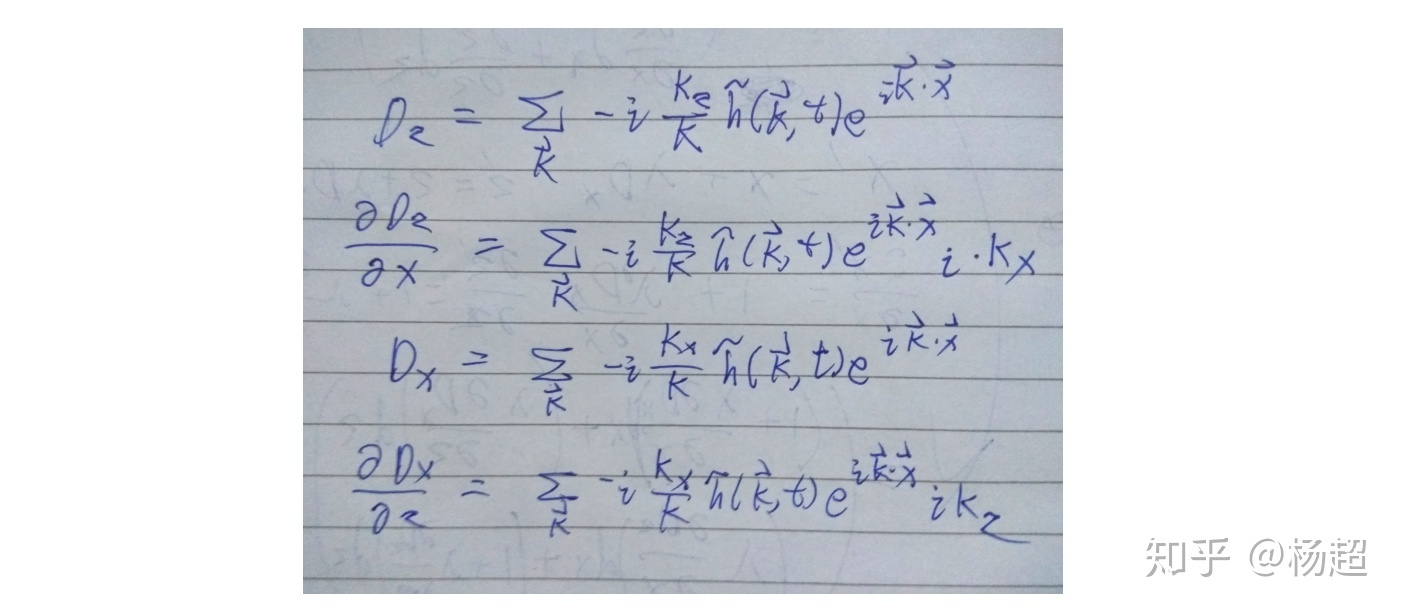 D_z = Σ_{k⃗} -i k_z/k h̃(k⃗,t)e^{ik⃗·x⃗}
∂D_z/∂x = Σ_{k⃗} -i k_z/k h̃(k⃗,t)e^{ik⃗·x⃗} i·k_x
D_x = Σ_{k⃗} -i k_x/k h̃(k⃗,t)e^{ik⃗·x⃗}
∂D_x/∂z = Σ_{k⃗} -i k_x/k h̃(k⃗,t)e^{ik⃗·x⃗} ik_z
知乎 @杨超